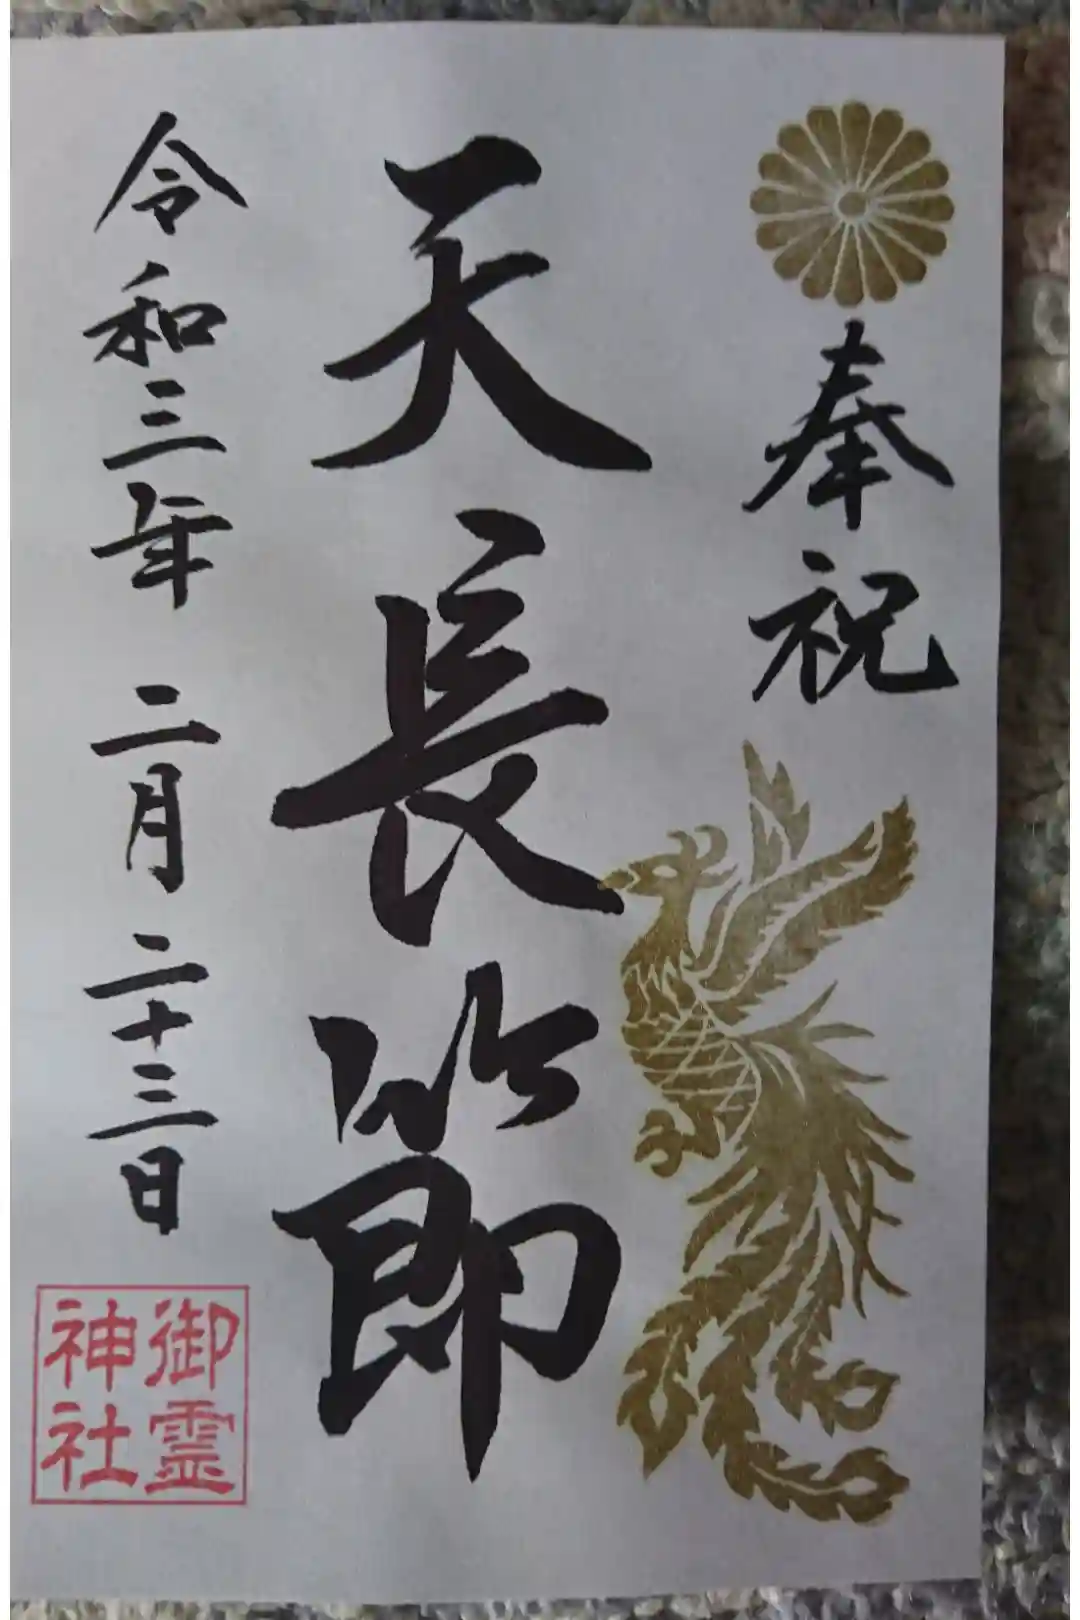 奉祝
天長節
令和三年 二月二十三日
御霊
神社